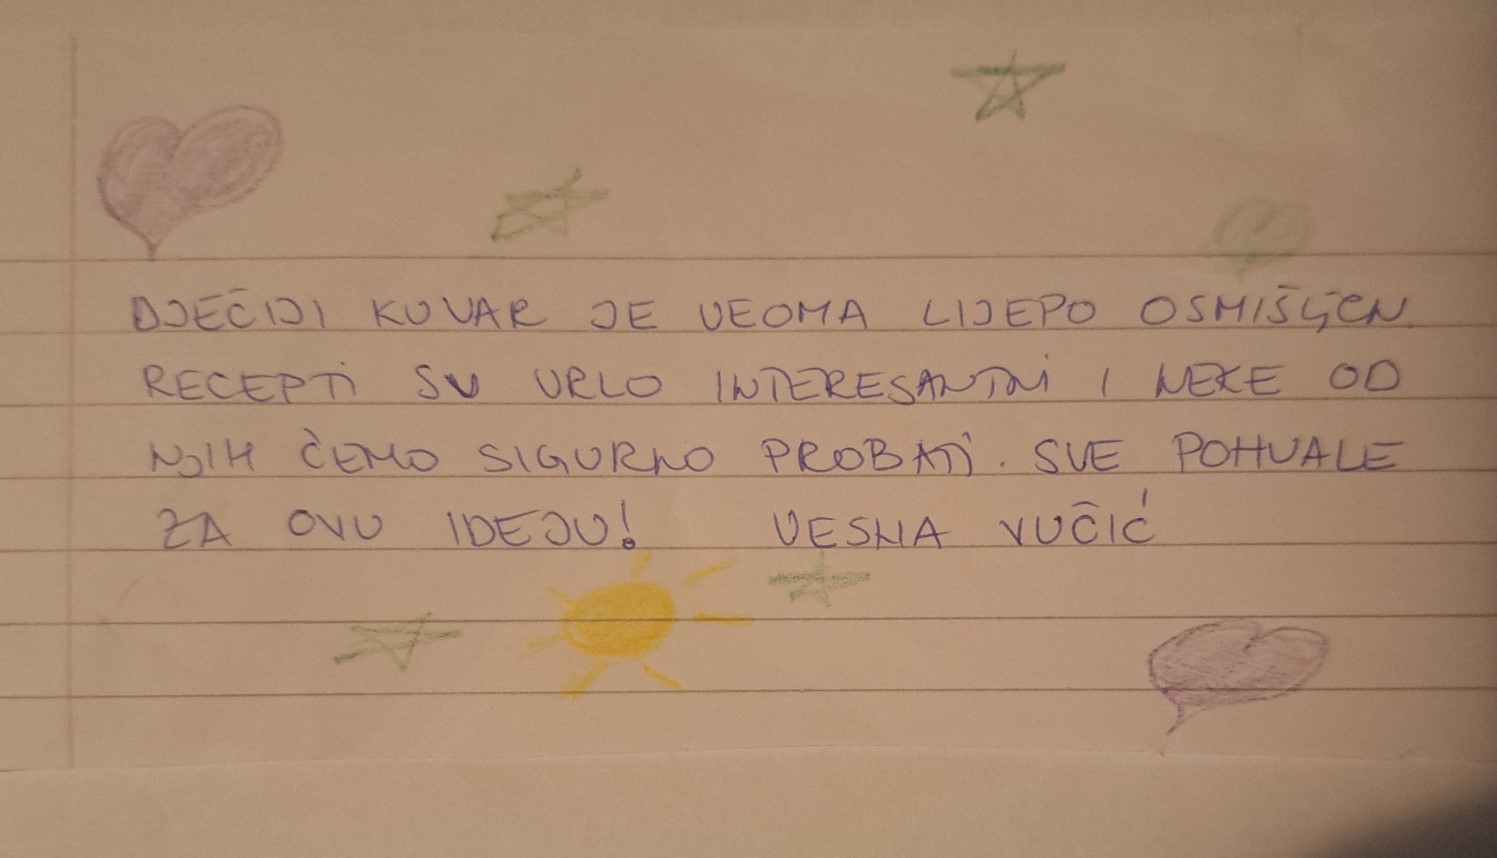 DJEČIJI KUVAR JE VEOMA LIJEPO OSMIŠLJEN.
RECEPTI SU VRLO INTERESANTNI I NEKE OD
NJIH ČEMO SIGURNO PROBATI. SVE POHVALE
ZA OVU IDEJU! VESNA VUČIĆ